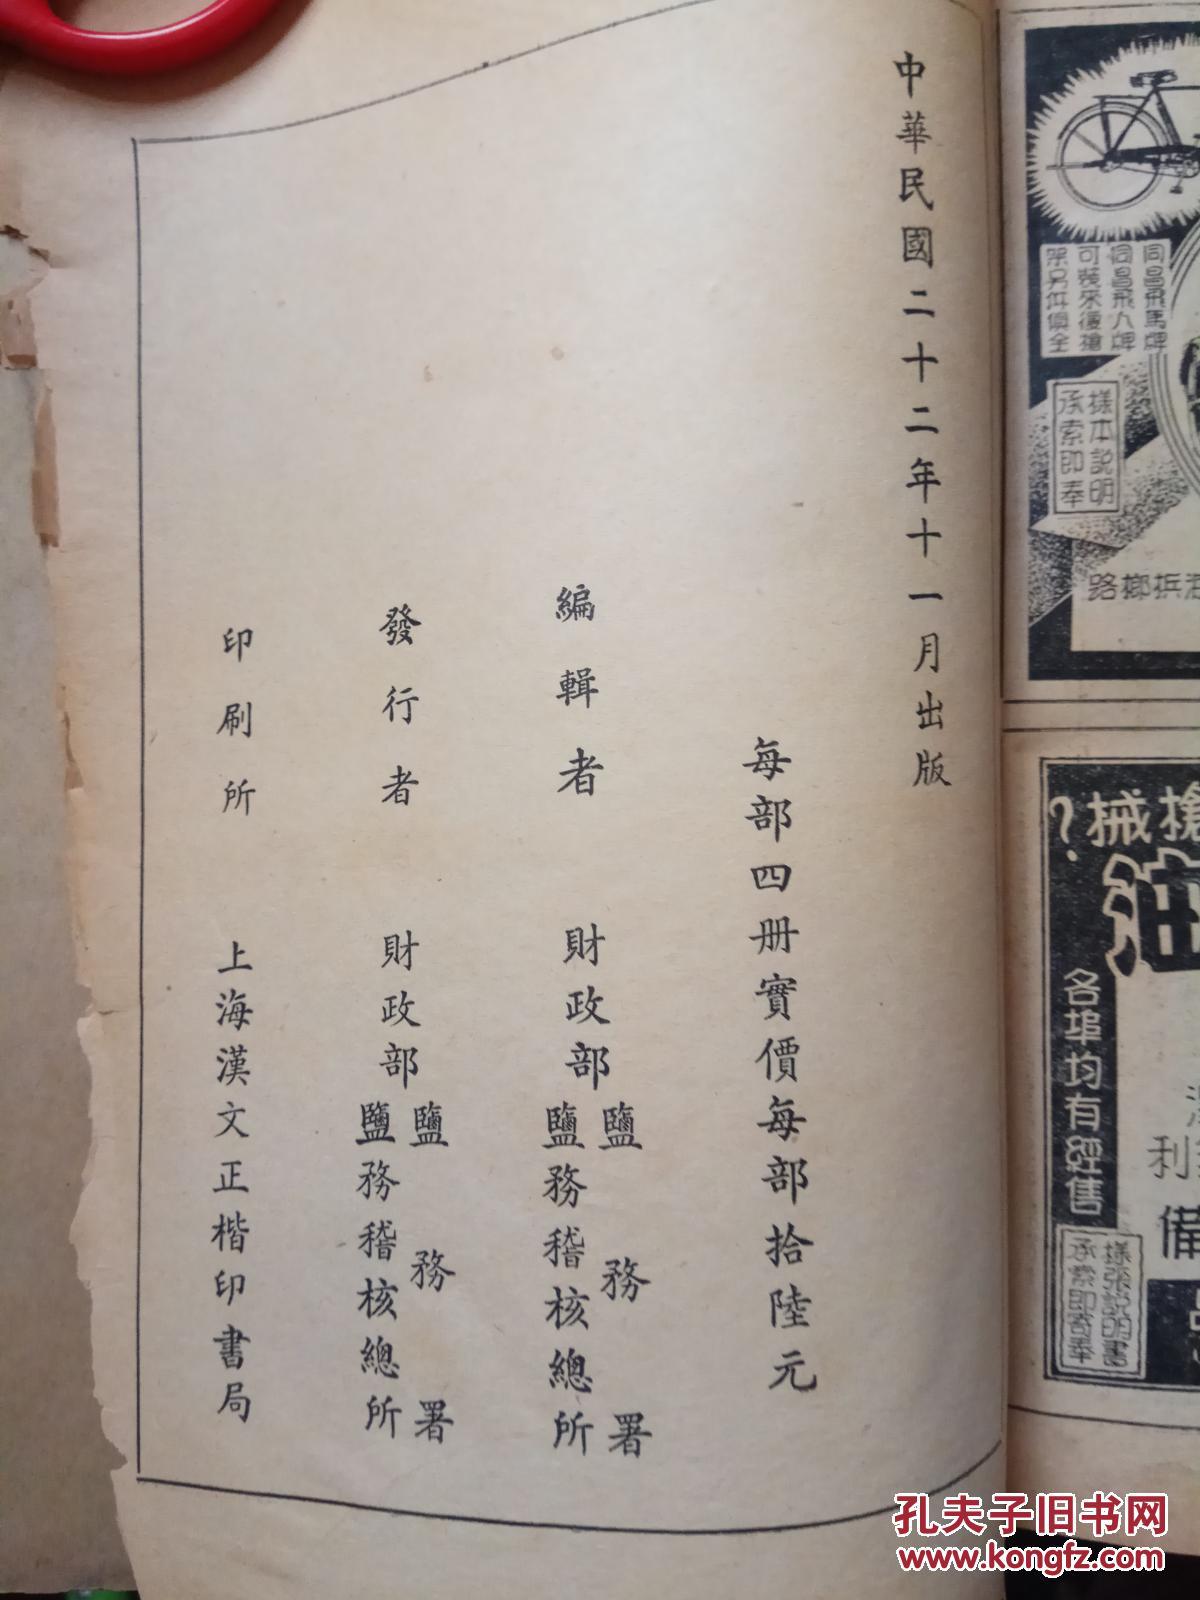 中華民國二十二年十一月出版
每部四册實價每部拾陸元
編輯者 財政部
鹽務署
鹽務稽核總所
發行者 財政部
鹽務署
鹽務稽核總所
印刷所 上海漢文正楷印書局
同昌飛馬牌
同昌飛人牌
可裝來復槍
架另件俱全
樣本説明
承索即奉
浜榔路
槍械?
油
各埠均有經售
利
備
樣張説明書
承索即寄奉
孔夫子旧书网
www.kongfz.com